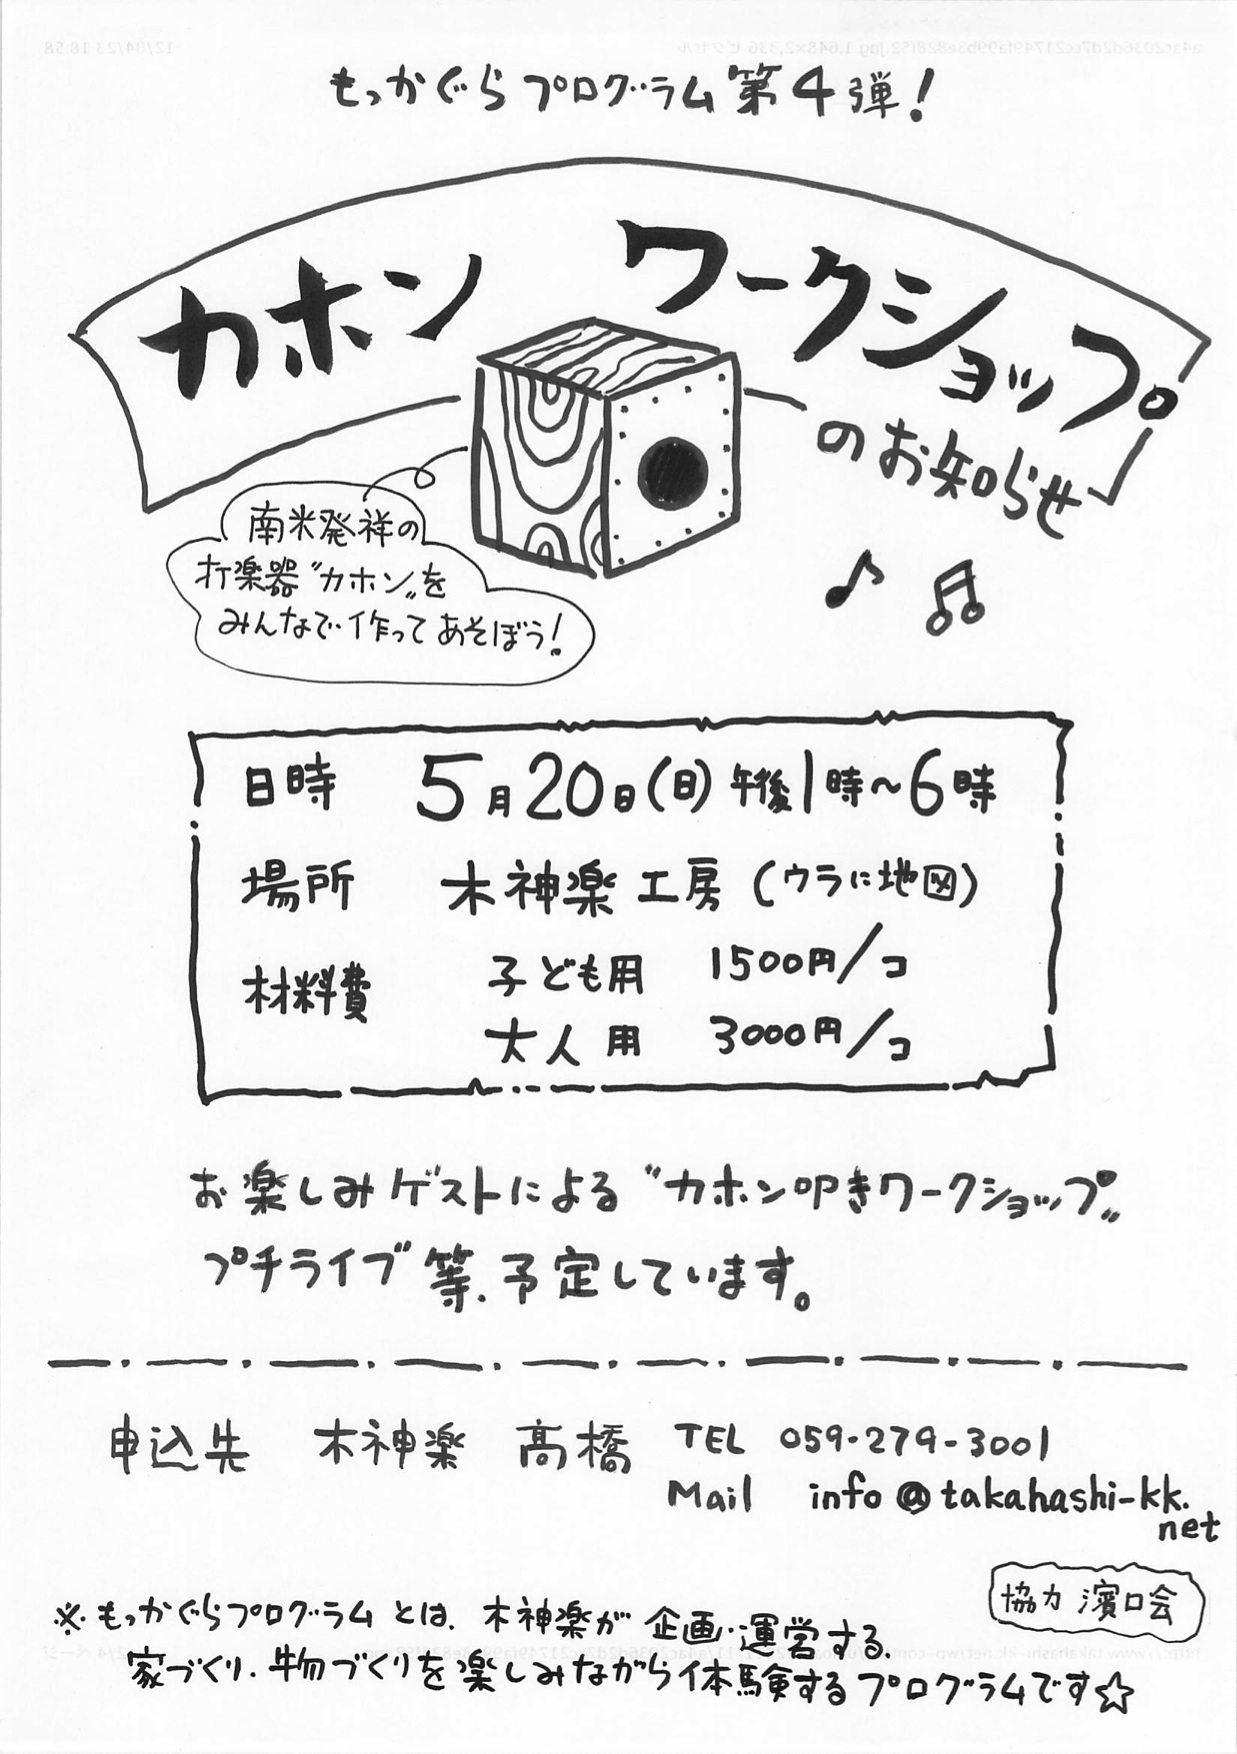 もっかぐらプログラム第4弾!
カホン ワークショップ
のお知らせ
南米発祥の
打楽器〝カホン〟を
みんなで作ってあそぼう!
日時 5月20日(日)午後1時~6時
場所 木神楽工房(ウラに地図)
材料費 子ども用 1500円/コ
大人用 3000円/コ
お楽しみゲストによる〝カホン叩きワークショップ〟
プチライブ等、予定しています。
申込先 木神楽 髙橋 TEL 059-279-3001
Mail info@takahashi-kk.
net
協力 濱口会
※もっかぐらプログラムとは、木神楽が企画・運営する、
家づくり、物づくりを楽しみながら体験するプログラムです☆